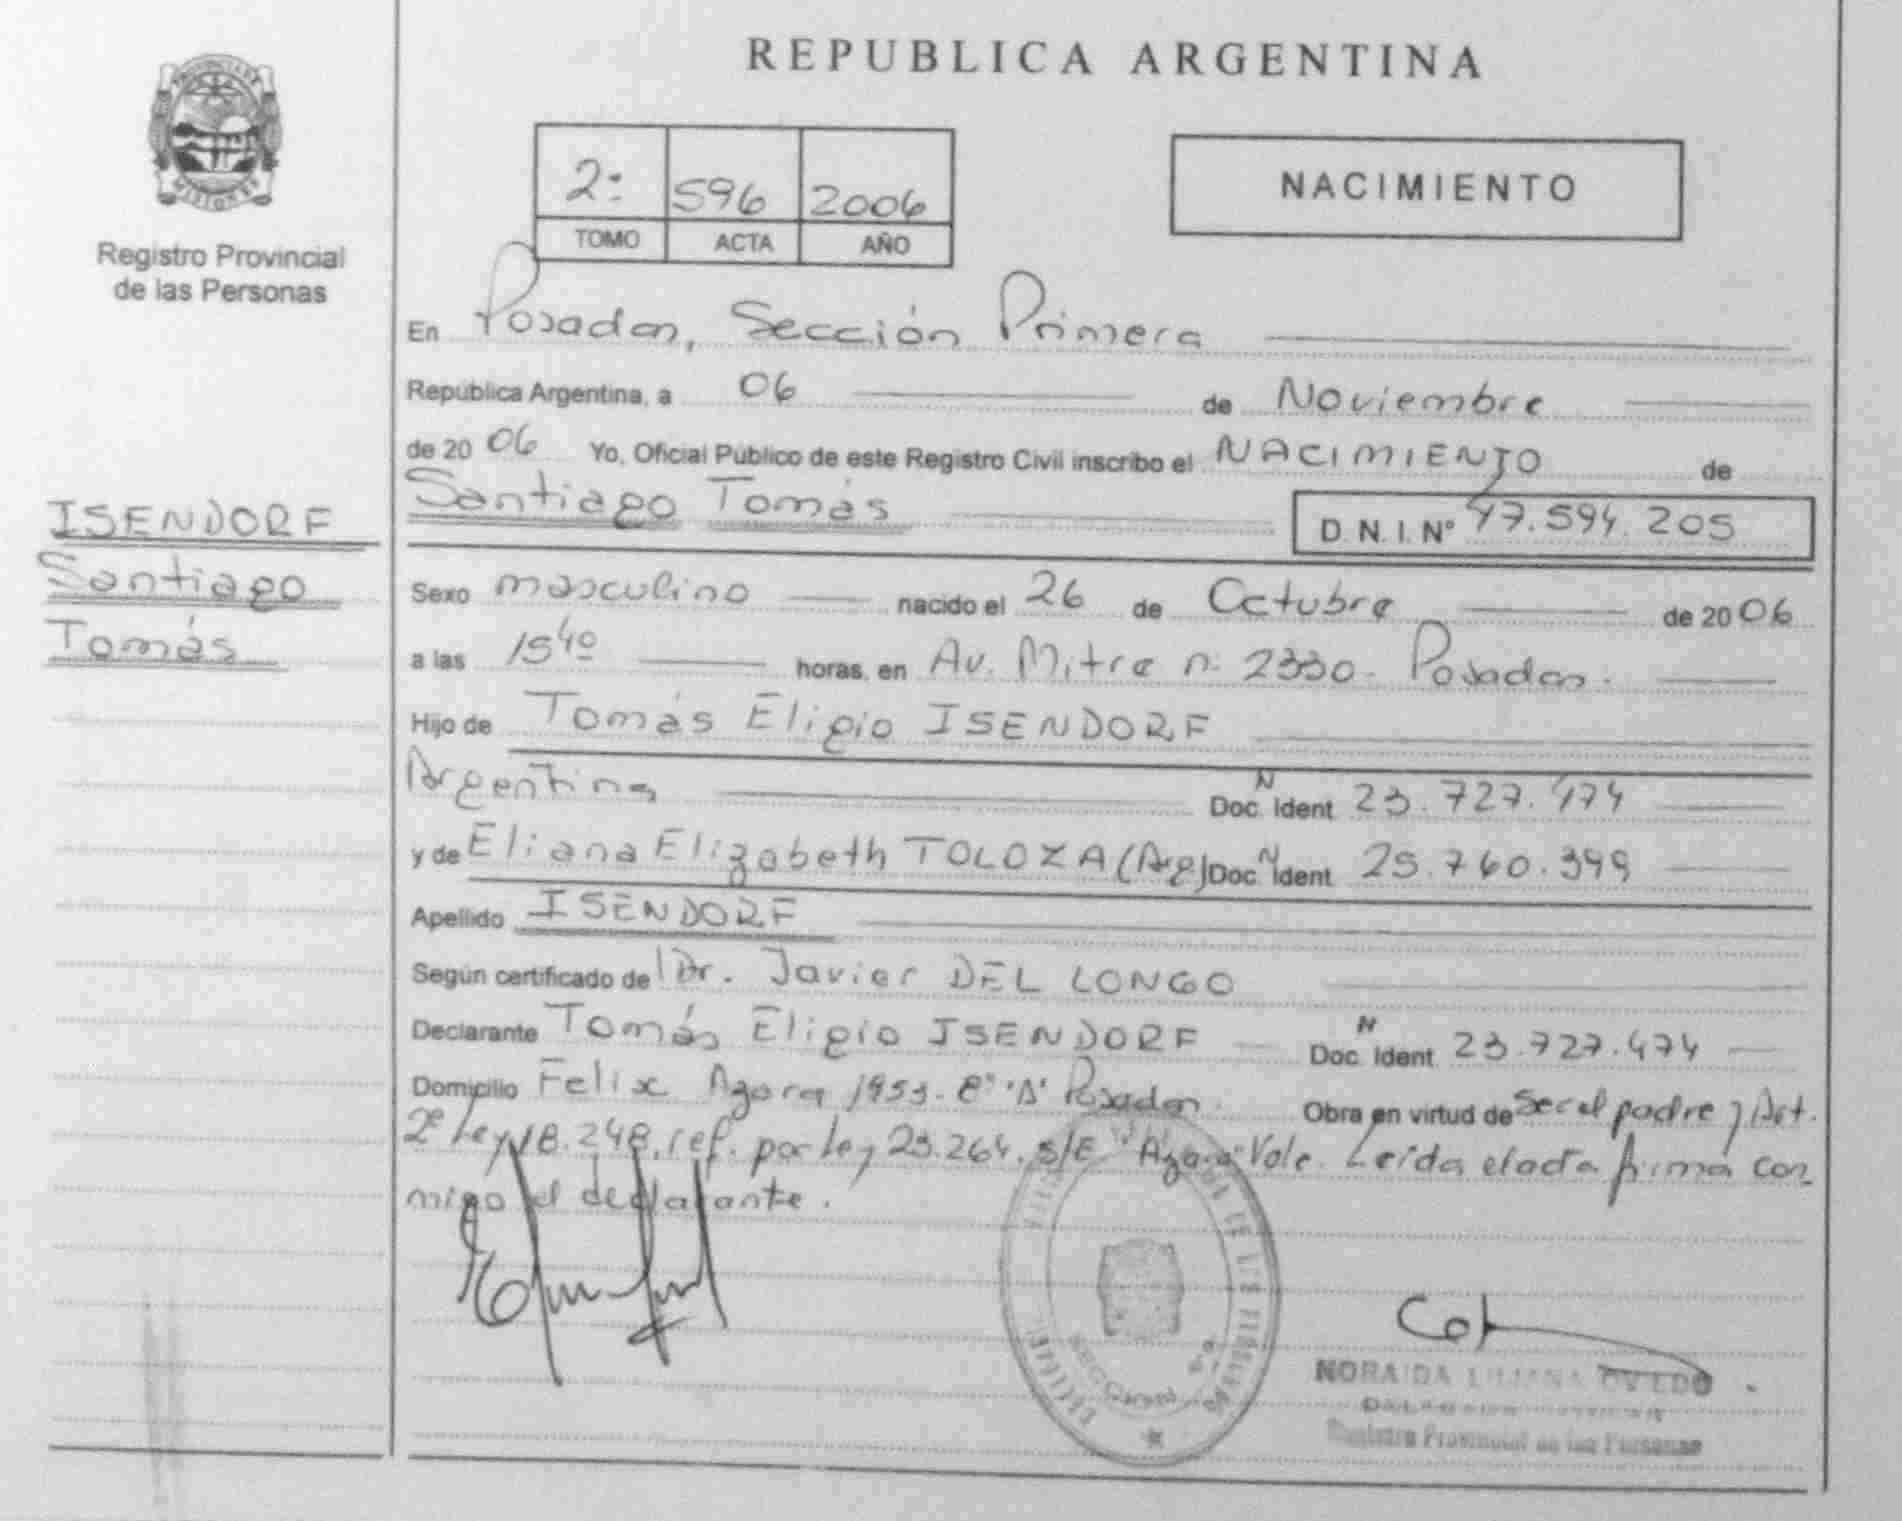 REPUBLICA ARGENTINA
PROVINCIA DE
MISIONES
Registro Provincial
de las Personas
2º 596 2006
TOMO ACTA AÑO
NACIMIENTO
En Posadas, Sección Primera
República Argentina, a 06 de Noviembre
de 2006 Yo, Oficial Público de este Registro Civil inscribo el NACIMIENTO de
Santiago Tomás D.N.I. Nº 47.594.205
ISENDORF
Santiago
Tomás
Sexo masculino nacido el 26 de Octubre de 2006
a las 15 40 horas, en Av. Mitre nº 2330. Posadas.
Hijo de Tomás Eligio ISENDORF
Argentina N Doc. Ident 23.727.474
y de Eliana Elizabeth TOLOZA (Arg) N Doc. Ident 25.760.399
Apellido ISENDORF
Según certificado de Dr. Javier DEL LONGO
Declarante Tomás Eligio ISENDORF N Doc. Ident 23.727.474
Domicilio Felix Azara Posadas. Obra en virtud de Ser el padre y Art.
2º Ley 18.248, ref. por Ley 23.264. s/E "Azara" Vale. Leída el acta firma con
migo el declarante.
SECCIONAL
NORAIDA LILIANA OVIEDO
Registro Provincial de las Personas